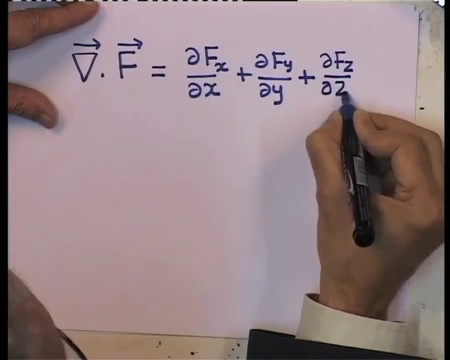 ∇⃗ . F⃗ = ∂Fx/∂x + ∂Fy/∂y + ∂Fz/∂z